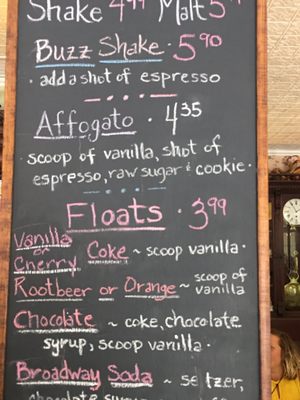 Shake 4⁹⁹ Malt 5
Buzz Shake · 5⁹⁰
· add a shot of espresso
Affogato · 4.³⁵
· scoop of vanilla, shot of
espresso, raw sugar & cookie ·
Floats · 3⁹⁹
Vanilla
or
Cherry Coke ~ scoop vanilla ·
Rootbeer or Orange ~ scoop of
vanilla
Chocolate ~ coke, chocolate
syrup, scoop vanilla ·
Broadway Soda ~ seltzer,
chocolate